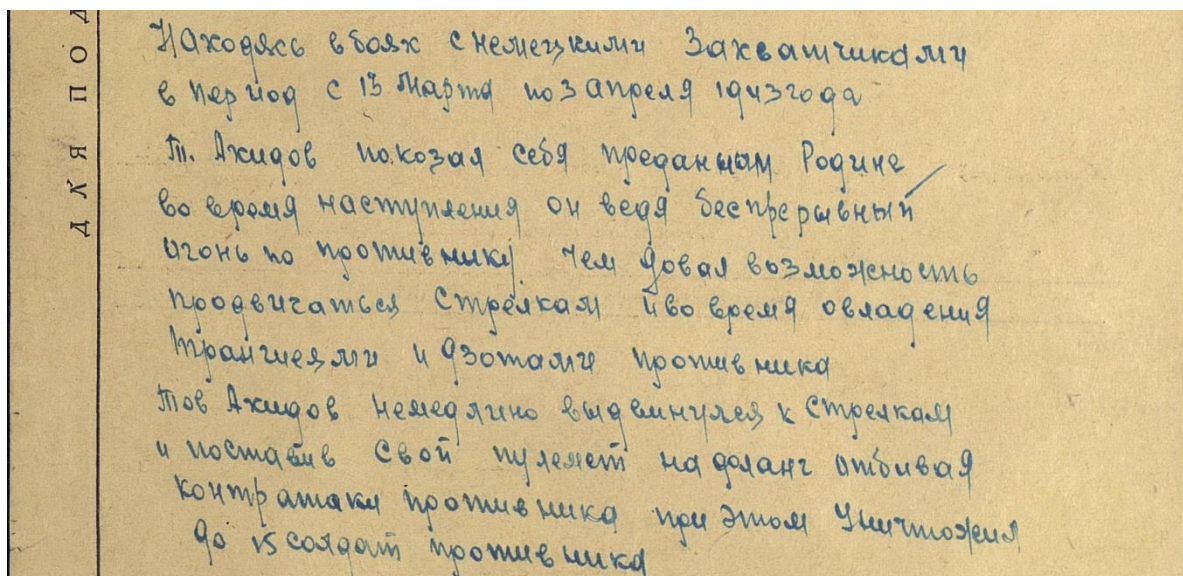 ДЛЯ ПОД
Находясь в боях с немецкими Захватчиками
в период с 13 Марта по 3 апреля 1943 года
т. Ахидов показал себя преданным Родине
во время наступления он ведя беспрерывный
огонь по противнику чем довал возможность
продвигаться Стрелкам и во время овладения
траншеями и дзотами противника
тов Ахидов немедлино выдвинулся к Стрелкам
и поставив Свой пулемет на фланг отбивая
контратаки противника при этом Уничтожил
до 15 солдат противника